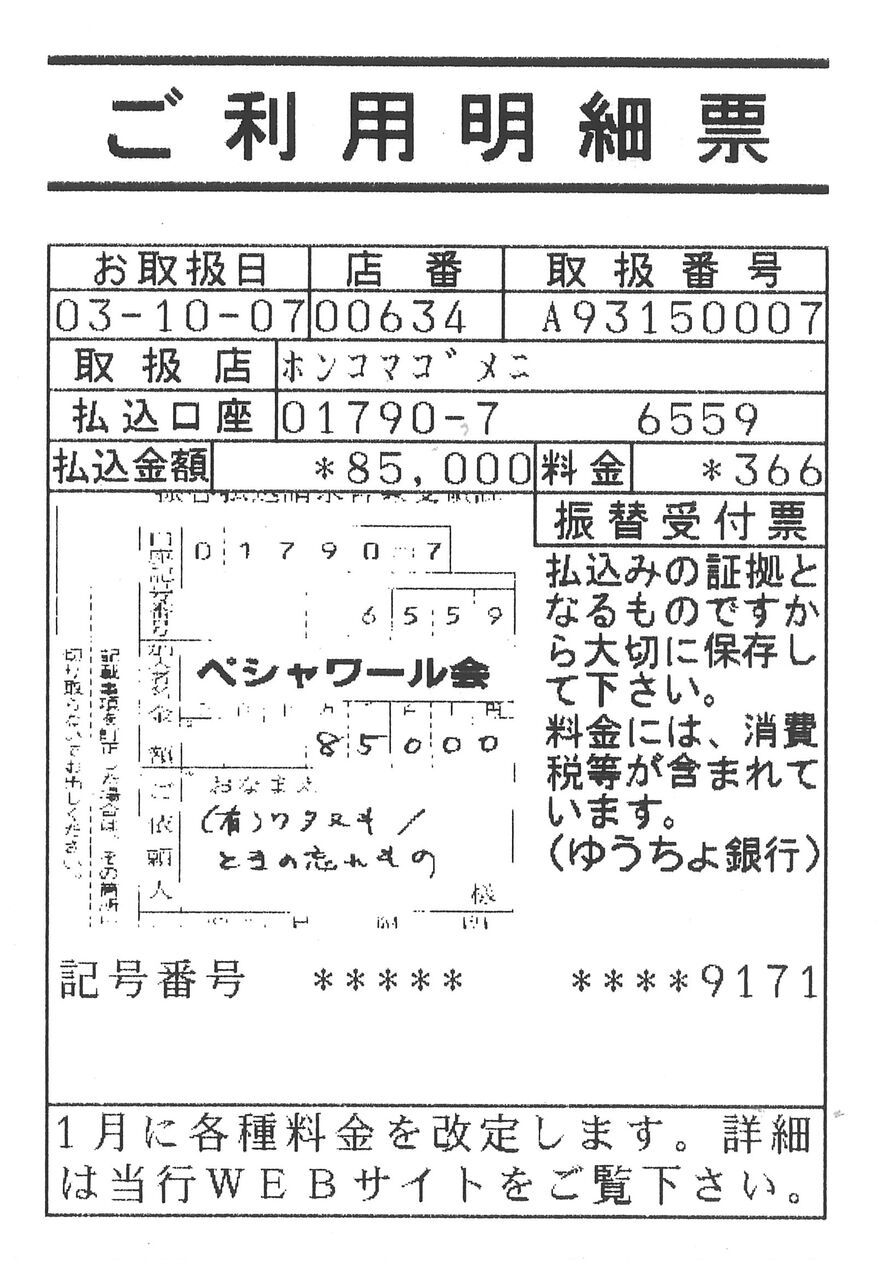 ご利用明細票
お取扱日 店番 取扱番号
03-10-07 00634 A93150007
取扱店 ホンコマゴメニ
払込口座 01790-7 6559
払込金額 *85,000 料金 *366
振替受付票
払込みの証拠と
なるものですか
ら大切に保存し
て下さい。
料金には、消費
税等が含まれて
います。
(ゆうちょ銀行)
01790 7
6559
ペシャワール会
金額
85000
おなまえ
ご依頼人
(有)ワタヌキ/
ときの忘れもの
様
記載事項を訂正した場合は、その箇所に
切り取らないでお出しください。
記号番号 ***** ****9171
1月に各種料金を改定します。詳細
は当行WEBサイトをご覧下さい。